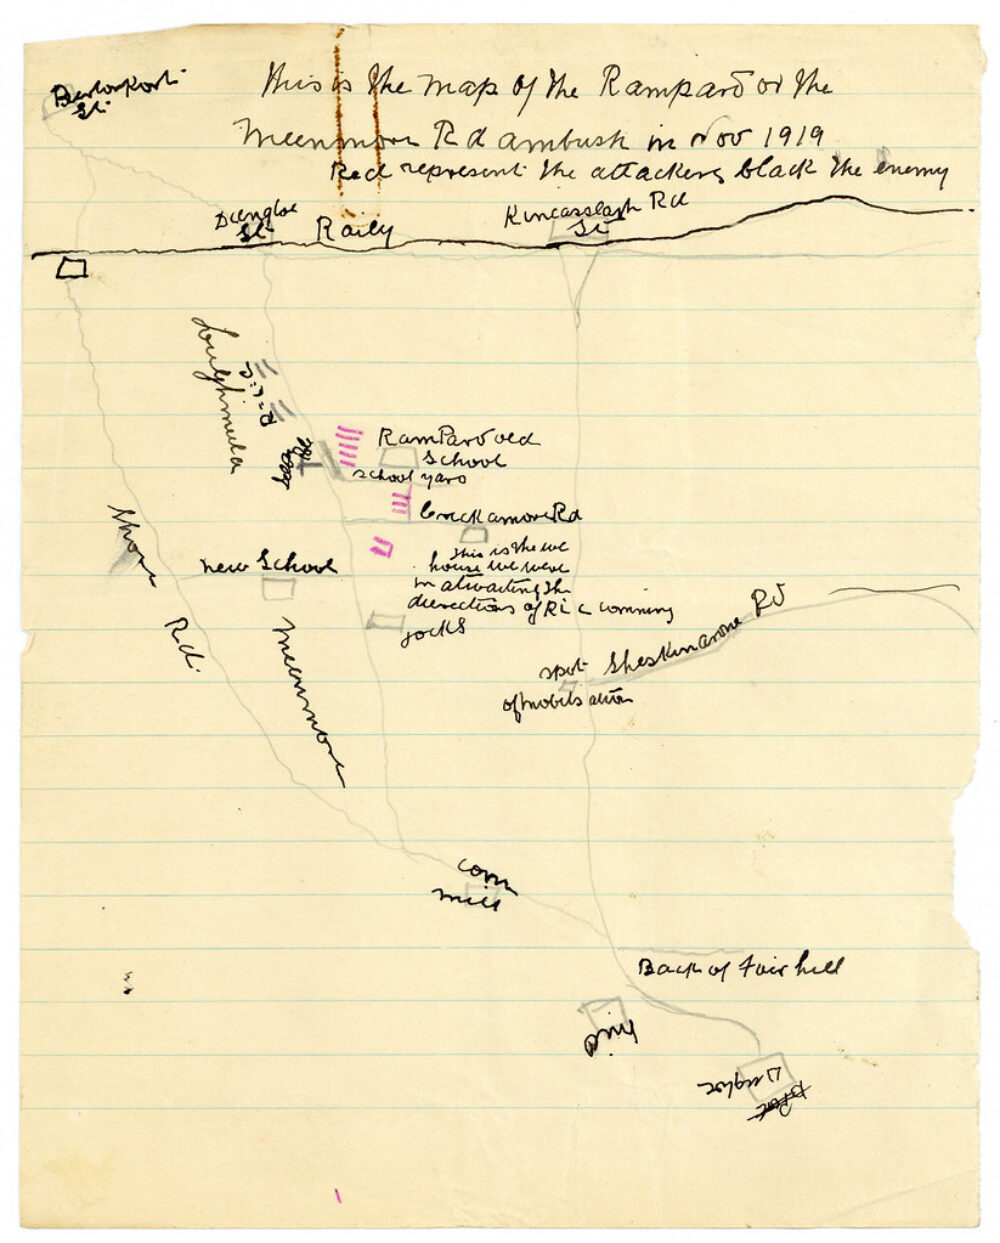 This is the map of the Rampard or the
Meenmore Rd ambush in Nov 1919
Red represent the attackers black the enemy
Burtonport
St.
Dungloe
St.
Raily
Kincasslagh Rd
St
Loughmula
R.I.C
Rampard old
School
school yard
Cruckamore Rd
This is the we
house we were
in atwaiting the
directions of RIC comming
Jocks
new School
Shore Rd.
Meenmore
spot
of mobilsation
Sheskinarone Rd
corn
mill
Back of Fair hill
Dungloe